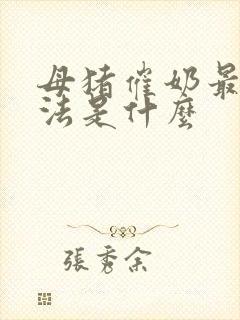 母猪催奶最
法是什麼
張秀余